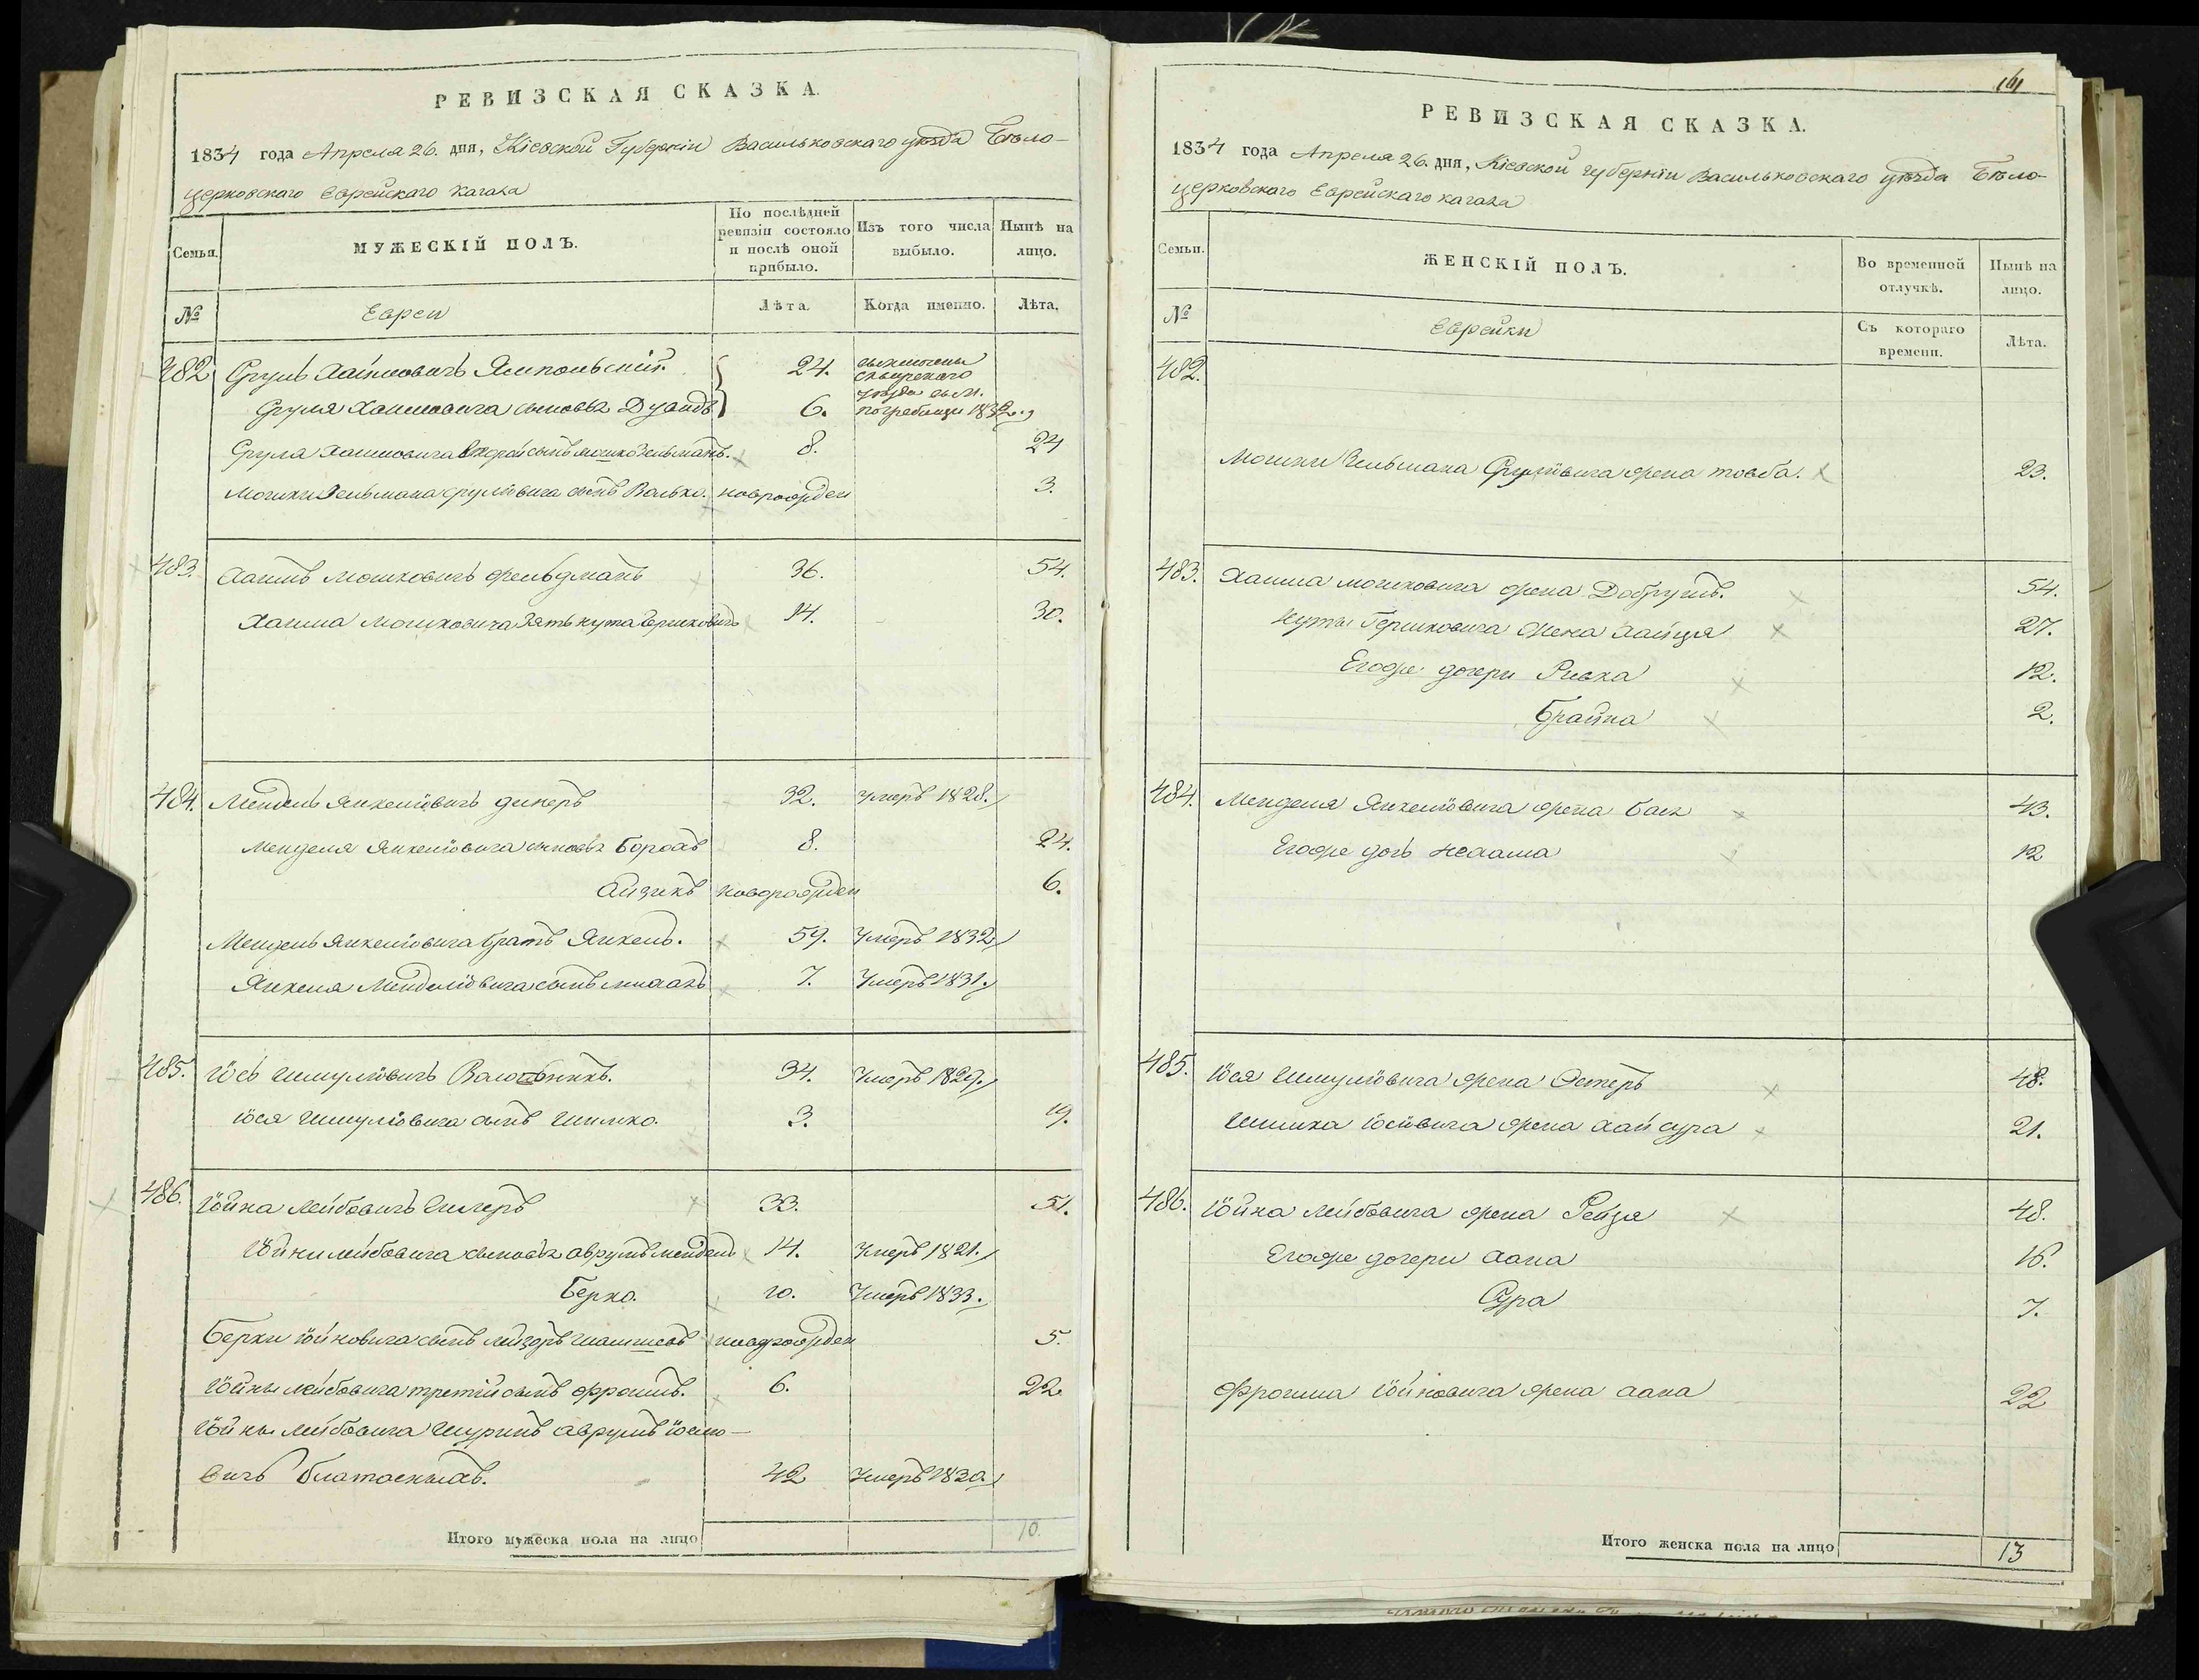 РЕВИЗСКАЯ СКАЗКА.
1834 года Апреля 26. дня, Кіевской Губерніи Васильковскаго уѣзда Бѣло-
церковскаго Еврейскаго кагала
Семьи.
МУЖЕСКІЙ ПОЛЪ.
По послѣдней ревизіи состояло и послѣ оной прибыло.
Изъ того числа выбыло.
Нынѣ на лицо.
№
Евреи
Лѣта.
Когда именно.
Лѣта.
482 Сруль Хаймовичъ Ямпольскій. 24.
Сруля Хаимовича сыновья 6. 1832.
Сруля Хаимовича второй сынъ Мошко Зельманъ. 8. 24
Мошки Зельмана Срулёвича сынъ Волько. новорожден 3.
483. Хаимъ Мошковичъ Фельдманъ 36. 54.
Хаима Мошковича зять Нута Гершковичъ 14. 30.
484. Мендель Янкелёвичъ 32. Умеръ 1828.
Менделя Янкелёвича сыновья Борохъ 8. 24.
Айзикъ новорожден 6.
Мендель Янкелёвича братъ Янкель. 59. Умеръ 1832
Янкеля Менделёвича сынъ 7. Умеръ 1831.
485. Іось Шмулёвичъ 34. Умеръ 1829.
Іося Шмулёвича сынъ Шимко. 3. 19.
486. Іойна Лейбовичъ 33. 51.
Іойны Лейбовича сыновья Аврумъ Мендель 14. Умеръ 1821.
Берко. 20. Умеръ 1833.
Берки Іойновича сынъ Лейзоръ новорожден 5.
Іойны Лейбовича третій сынъ Фроимъ. 6. 22.
Іойны Лейбовича Шуринъ Аврумъ Іосио-
вичъ 42 Умеръ 1830.
Итого мужеска пола на лицо 10.
161
РЕВИЗСКАЯ СКАЗКА.
1834 года Апреля 26. дня, Кіевской губерніи Васильковскаго уѣзда Бѣло-
церковскаго Еврейскаго кагала
Семьи.
ЖЕНСКІЙ ПОЛЪ.
Во временной отлучкѣ.
Нынѣ на лицо.
№
Еврейки
Съ котораго времени.
Лѣта.
482.
Мошки Зельмана Срулёвича жена Товба. 23.
483. Хаима Мошковича жена Добрушъ. 54.
Нуты Гершковича жена Хайця 27.
Егоже дочери Ривка 12.
Брайна 2.
484. Менделя Янкелёвича жена Бася 43.
Егоже дочь Нехама 12
485. Іося Шмулёвича жена Естеръ 48.
Шимка Іосіовича жена Хай Сура 21.
486. Іойна Лейбовича жена Рейзя 48.
Егоже дочери Хана 16.
Сура 7.
Фроима Іойновича жена Хана 22
Итого женска пола на лицо 13